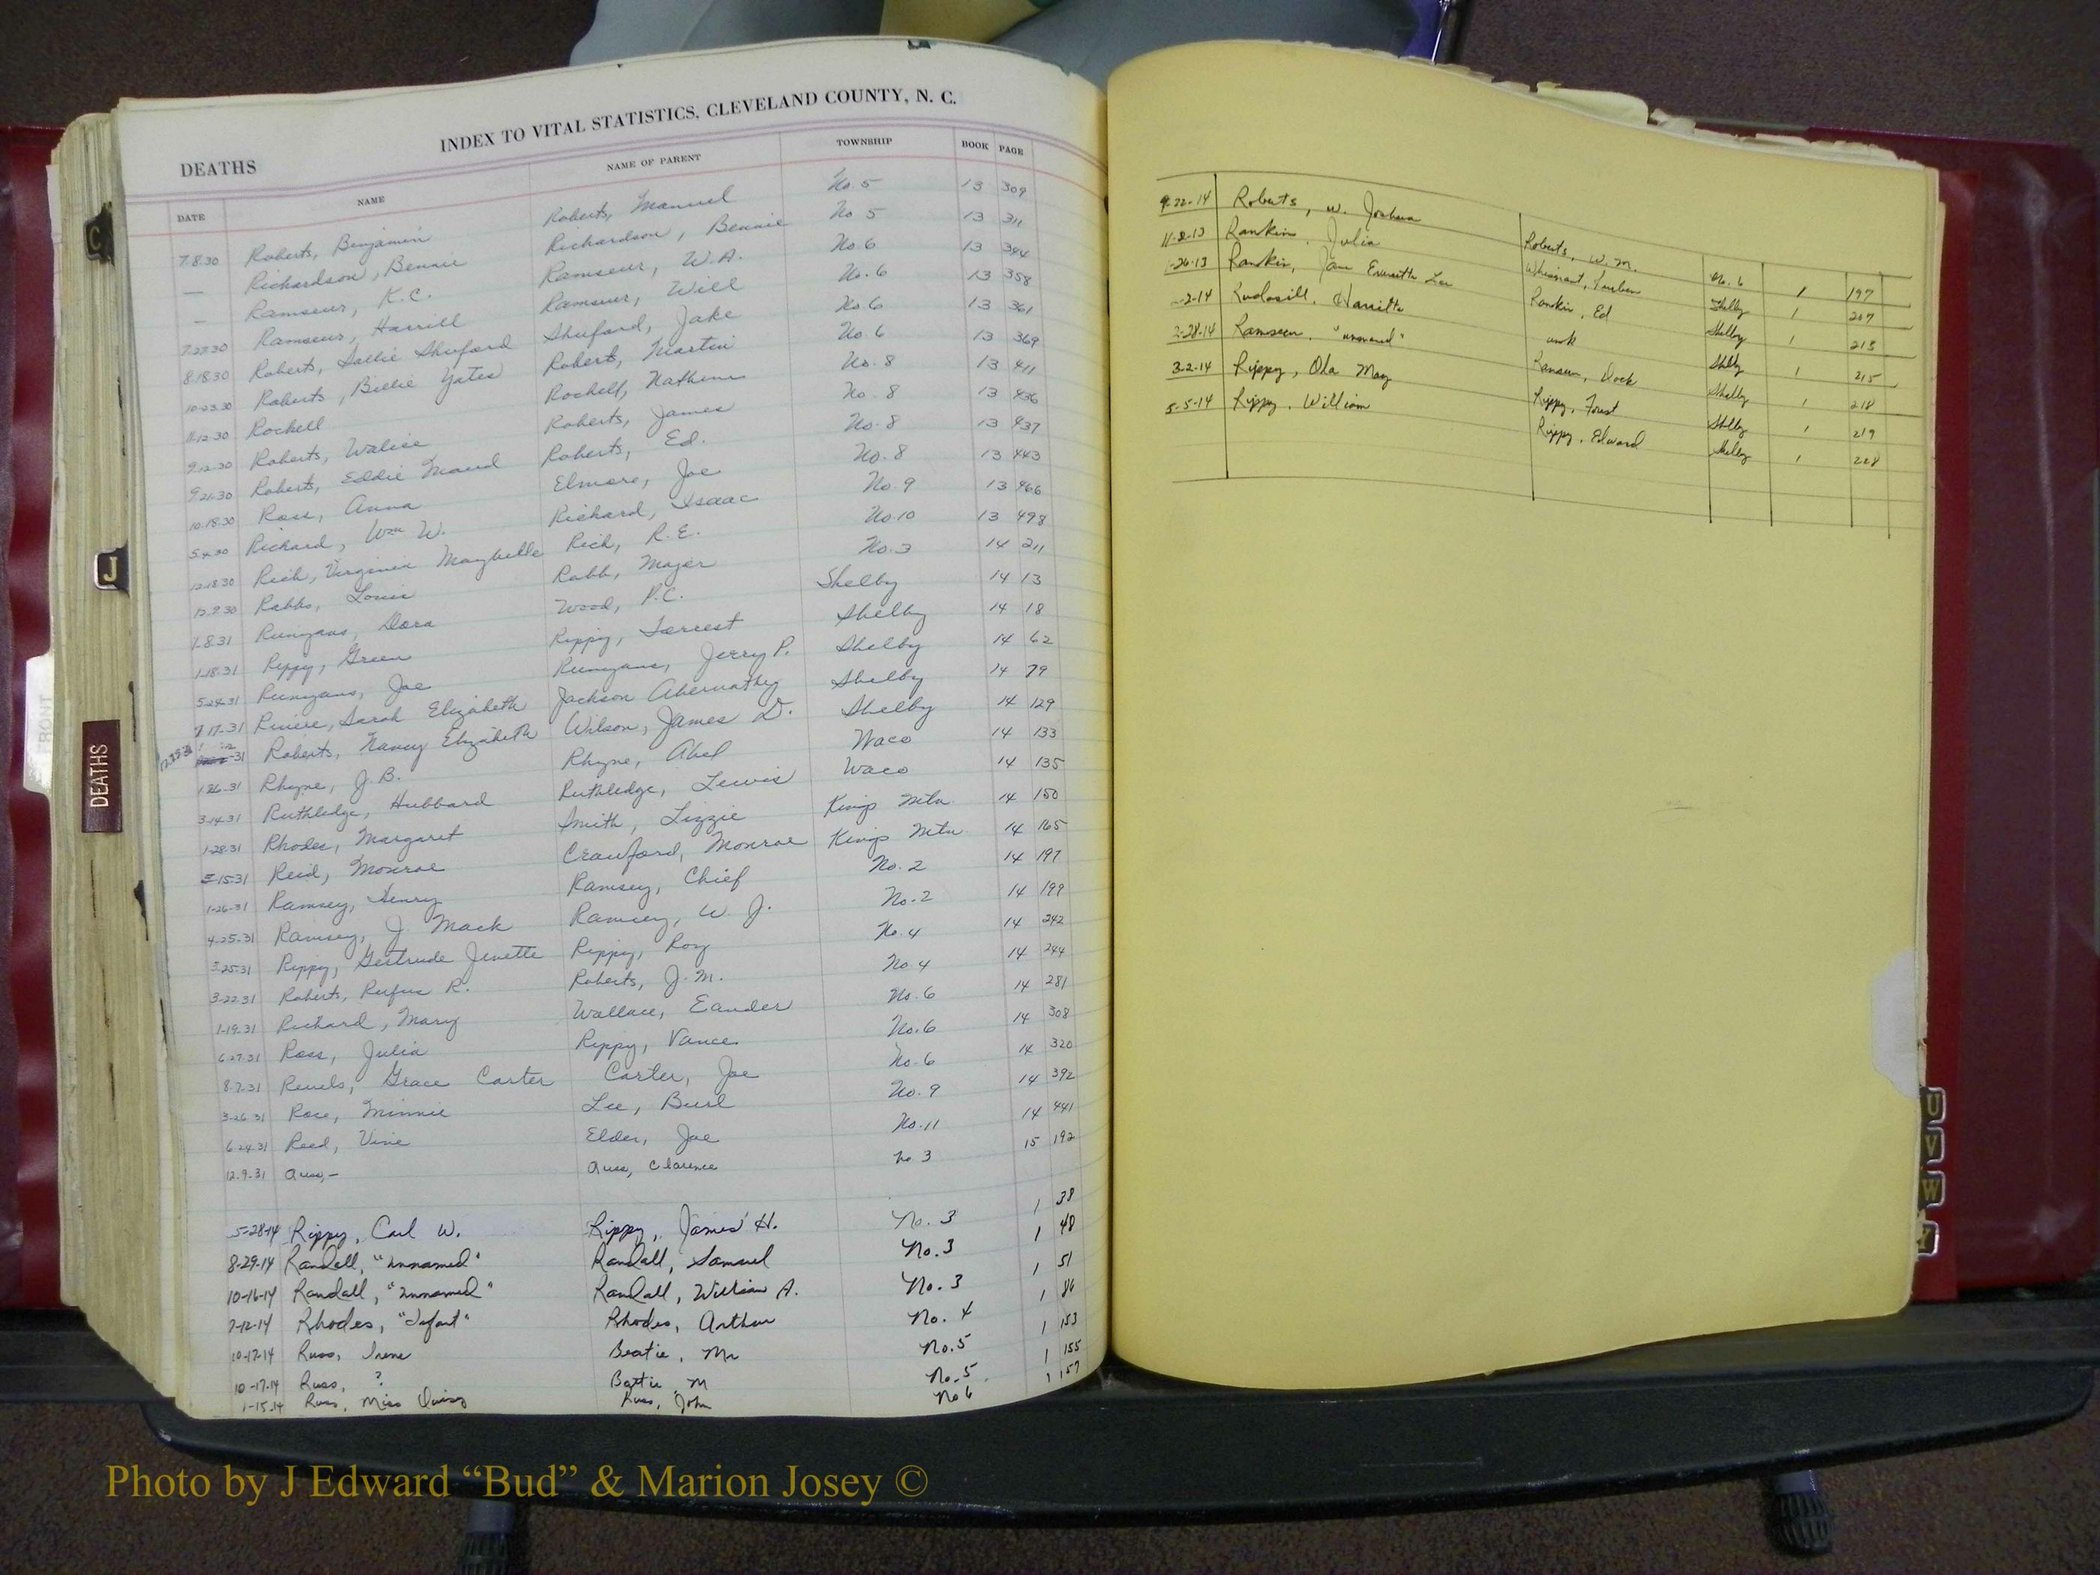 INDEX TO VITAL STATISTICS, CLEVELAND COUNTY, N. C.
DEATHS
DATE NAME NAME OF PARENT TOWNSHIP BOOK PAGE
7.8.30 Roberts, Benjamin Roberts, Manuel No. 5 13 309
— Richardson, Bennie Richardson, Bennie No 5 13 311
— Ramseur, K.C. Ramseur, W.A. No. 6 13 344
7.27.30 Ramseur, Harrill Ramseur, Will No. 6 13 358
8.18.30 Roberts, Sallie Shuford Shuford, Jake No. 6 13 361
10-23.30 Roberts, Billie Yates Roberts, Martin No. 6 13 369
11.12.30 Rochell Rochell, Nathem No. 8 13 411
9.12.30 Roberts, Walice Roberts, James No. 8 13 436
9.21.30 Roberts, Eddie Maud Roberts, Ed. No. 8 13 437
10.18.30 Ross, Anna Elmore, Joe No. 8 13 443
5.4.30 Richard, Wm W. Richard, Isaac No. 9 13 466
12.18.30 Rich, Virginia Maybelle Rich, R.E. No. 10 13 498
12.9.30 Rabbs, Louis Rabb, Major No. 3 14 211
1-8.31 Runyans, Dora Wood, P.C. Shelby 14 13
1-18.31 Rippy, Green Rippy, Forrest Shelby 14 18
5.24.31 Runyans, Joe Runyans, Jerry P. Shelby 14 62
7 17.31 Riviere, Sarah Elizabeth Jackson Abernathy Shelby 14 79
12.25.31 Roberts, Nancy Elizabeth Wilson, James D. Shelby 14 129
1.26.31 Rhyne, J.B. Rhyne, Abel Waco 14 133
3-14.31 Ruthledge, Hubbard Ruthledge, Lewis Waco 14 135
1-28.31 Rhodes, Margaret Smith, Lizzie Kings Mtn. 14 150
-15-31 Reid, Monroe Crawford, Monroe Kings Mtn 14 165
1-26-31 Ramsey, Henry Ramsey, Chief No. 2 14 197
4-25-31 Ramsey, J. Mack Ramsey, W. J. No. 2 14 199
3.25.31 Rippy, Gertrude Jenette Rippy, Roy No. 4 14 242
3-22.31 Roberts, Rufus R. Roberts, J.M. No. 4 14 244
1-19.31 Richard, Mary Wallace, Eander No. 6 14 281
6-27.31 Ross, Julia Rippy, Vance No. 6 14 308
8.7-31 Revels, Grace Carter Carter, Joe No. 6 14 320
3-26.31 Rose, Minnie Lee, Burl No. 9 14 392
6.24.31 Reed, Vine Elder, Joe No. 11 14 441
12.9-31 — Clarence No 3 15 192
5-28-14 Rippy, Carl W. Rippy, James H. No. 3 1 38
8-29-14 Randall, "unnamed" Randall, Samuel No. 3 1 48
10-16-14 Randall, "unnamed" Randall, William A. No. 3 1 51
7-12-14 Rhodes, "Infant" Rhodes, Arthur No. 4 1 86
10-17-14 Russ, Irene Beatie, Mr No. 5 1 153
10-17-14 Russ, ? Battie, M No. 5 1 155
1-15-14 Russ, Miss Russ, John No 6 1 157
9-22-14 Roberts, W. Joshua Roberts, W.M. No. 6 1 197
11-2-13 Rankin, Julia Whisnant, Shelby 1 207
1-26-13 Rankin, Jane Everette Lee Rankin, Ed Shelby 1 213
-2-14 Rudasill, Harriett unk Shelby 1 215
2-28-14 Ramseur, "unnamed" Ramseur, Dock Shelby 1 218
3-2-14 Rippy, Ola May Rippy, Forest Shelby 1 219
5-5-14 Rippy, William Rippy, Edward Shelby 1 228
C
J
DEATHS
FRONT
U
V
W
Y
Photo by J Edward “Bud” & Marion Josey ©